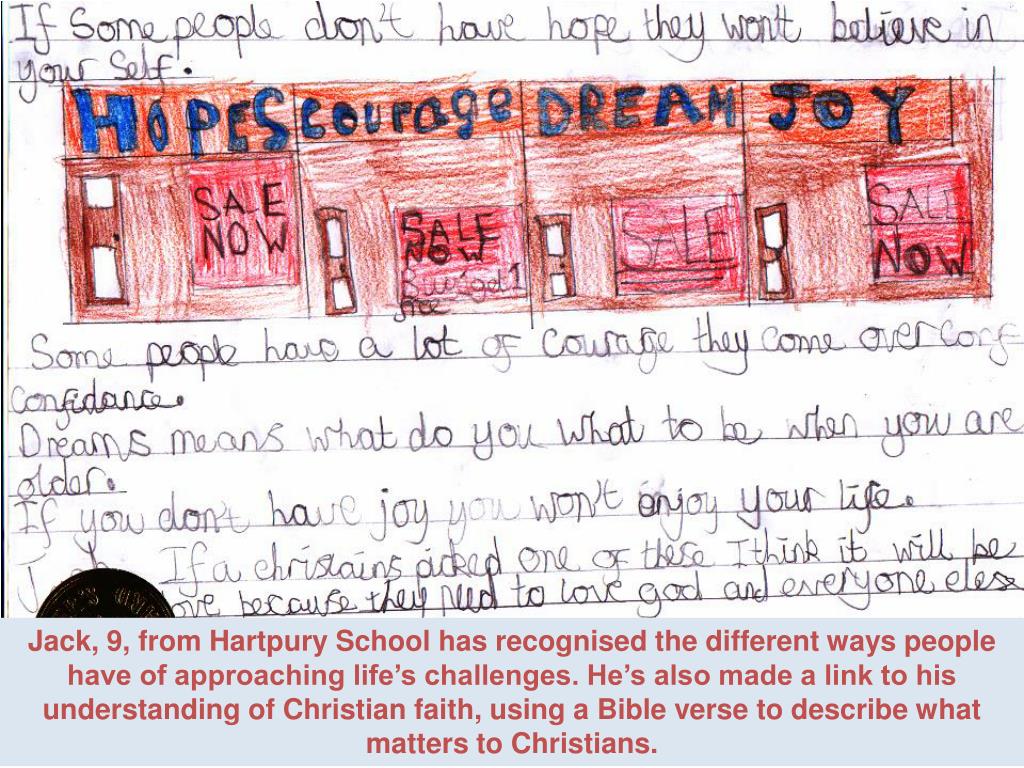 If Some people don't have hope they won't believe in
your Self.
HOPES courage DREAM JOY
SALE NOW
SALE NOW
Buy 1 get 1 free
SALE
SALE NOW
Some people have a lot of courage they come over conf
confidance.
Dreams means what do you what to be when you are
older.
If you don't have joy you won't enjoy your life.
If a christains picked one of these I think it will be
love because they need to love god and everyone eless
Jack, 9, from Hartpury School has recognised the different ways people
have of approaching life's challenges. He's also made a link to his
understanding of Christian faith, using a Bible verse to describe what
matters to Christians.